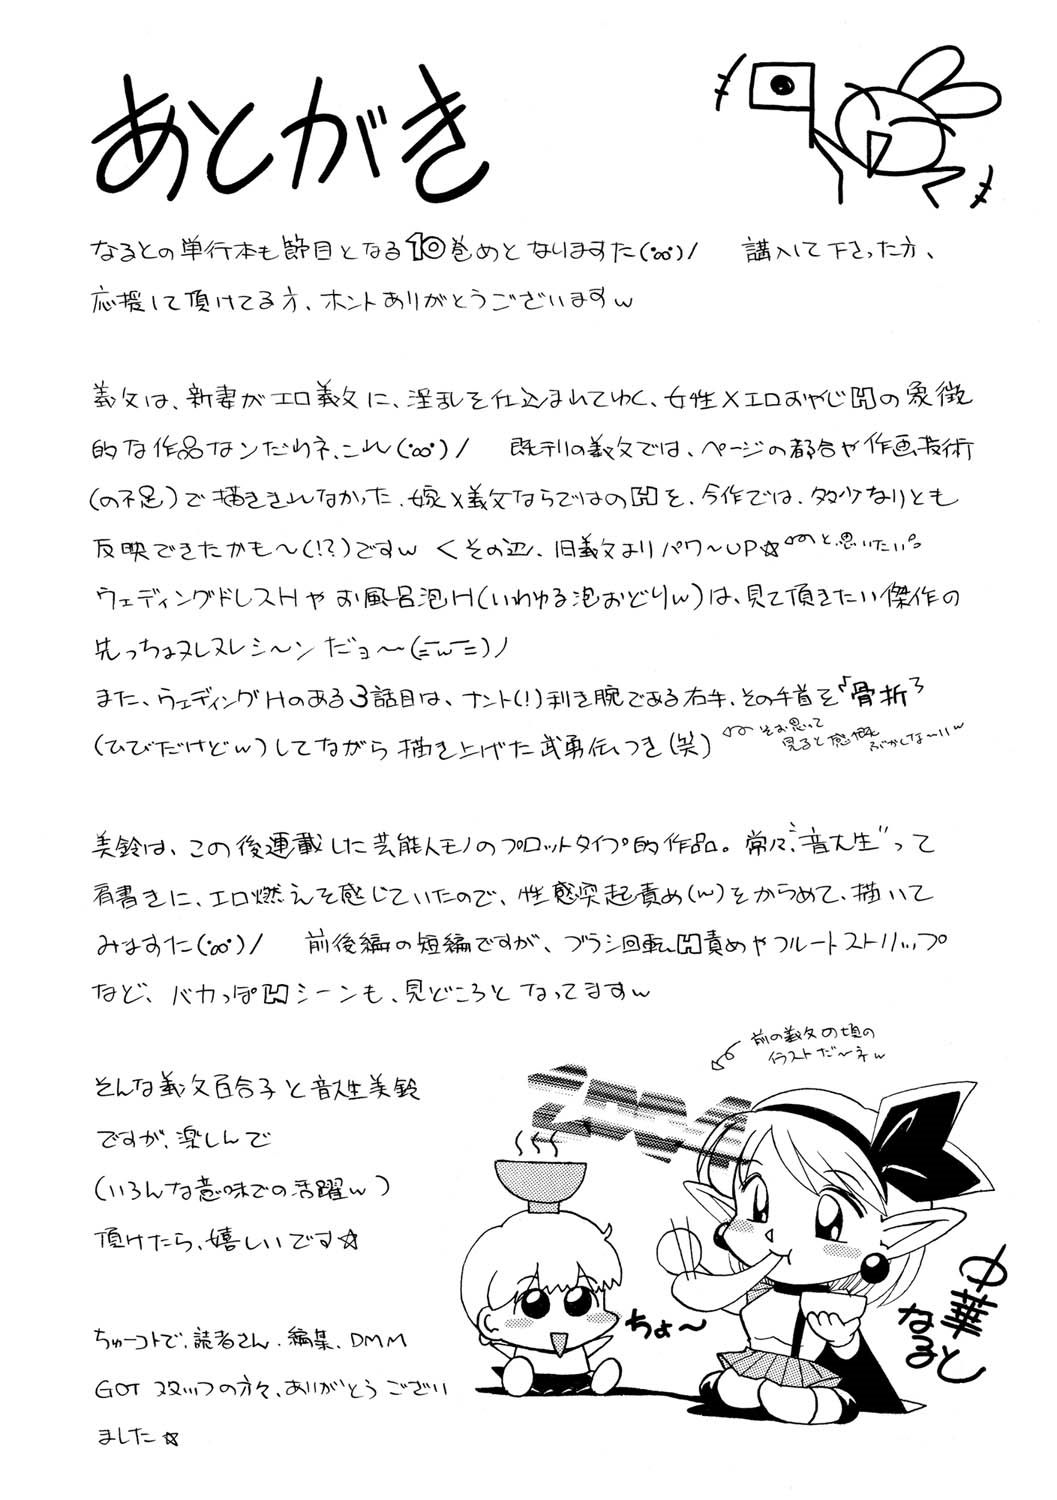 あとがき
なるとの単行本も節目となる10巻めとなりますた(°∞°)/ 講入して下さった方、
応援して頂けてる方、ホントありがとうございますw
義父は、新妻がエロ義父に、淫乱を仕込まれてゆく、女性×エロおやじHの象徴
的な作品なンだわネ、これ(°∞°)/ 既刊の義父では、ページの都合や作画技術
(の不足)で描ききれなかった、嫁×義父ならではのHを、今作では、多少なりとも
反映できたかも〜(!?)ですw くその辺、旧義父よりパワ〜UP☆ と思いたい。
ウェディングドレスHやお風呂泡H(いわゆる泡おどりw)は、見て頂きたい傑作の
先っちょヌレヌレシ〜ンだョ〜(=w=)ノ
また、ウェディングHのある3話目は、ナント(!)利き腕である右手、その手首を"骨折"
(ひびだけどw)してながら描き上げた武勇伝つき(笑)
そお思って
見ると感慨
ぶかしな〜いw
美鈴は、この後連載した芸能人モノのプロットタイプ的作品。常々、"音大生"って
肩書きに、エロ燃えを感じていたので、性感突起責め(w)をからめて、描いて
みますた(°∞°)/ 前後編の短編ですが、ブラシ回転H責めやフルートストリップ
など、バカっぽHシーンも、見どころとなってますw
前の義父の頃の
イラストだ〜ネw
そんな義父百合子と音大生美鈴
ですが、楽しんで
(いろんな意味での活躍w)
頂けたら、嬉しいです☆
ちょ〜
中華
なると
ちゅーコトで、読者さん、編集、DMM
GOTスタッフの方々、ありがとうござい
ました☆